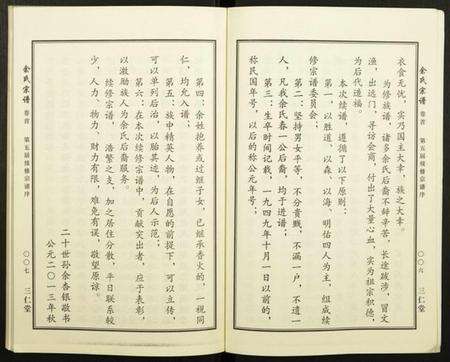 余氏宗谱
卷首
第五届续修宗谱序
〇〇六
三仁堂
衣食无忧，实乃国主大幸，族之大幸。
为修族谱，诸多余氏后裔不辞辛苦，长途跋涉，冒文
渔，出远门，寻访会商，付出了大量心血，实为祖宗积德，
为后代造福。
本次续谱，遵循了以下原则：
第一，以胜道，以森，以海，明佑四人为主，组成续
修宗谱委员会；
第二：坚持男女平等，不分贵贱，不漏一户，不遗一
人，凡我余氏春一公后裔，均于进谱；
第三：生卒时间记载，一九四九年十月一日以前的，
称民国年号，以后的称公元年号；
第四：余姓抱养或过继子女，已继承香火的，一视同
仁，均允入谱；
第五：族中精英人物，在自愿的前提下，可以立传，
可以单列后治，以胎其迹，为后人示范；
第六：在本次续修宗谱中，贡献突出者，应于表彰，
以激励族人为余氏后裔服务。
续修宗谱，浩繁之支，加之居住分散，平日联系较
少，人力、物力、财力有限，难免有误，敬望原谅。
二十世孙余杏银敬书
公元二〇一三年秋
余氏宗谱
卷首
第五届续修宗谱序
〇〇七
三仁堂